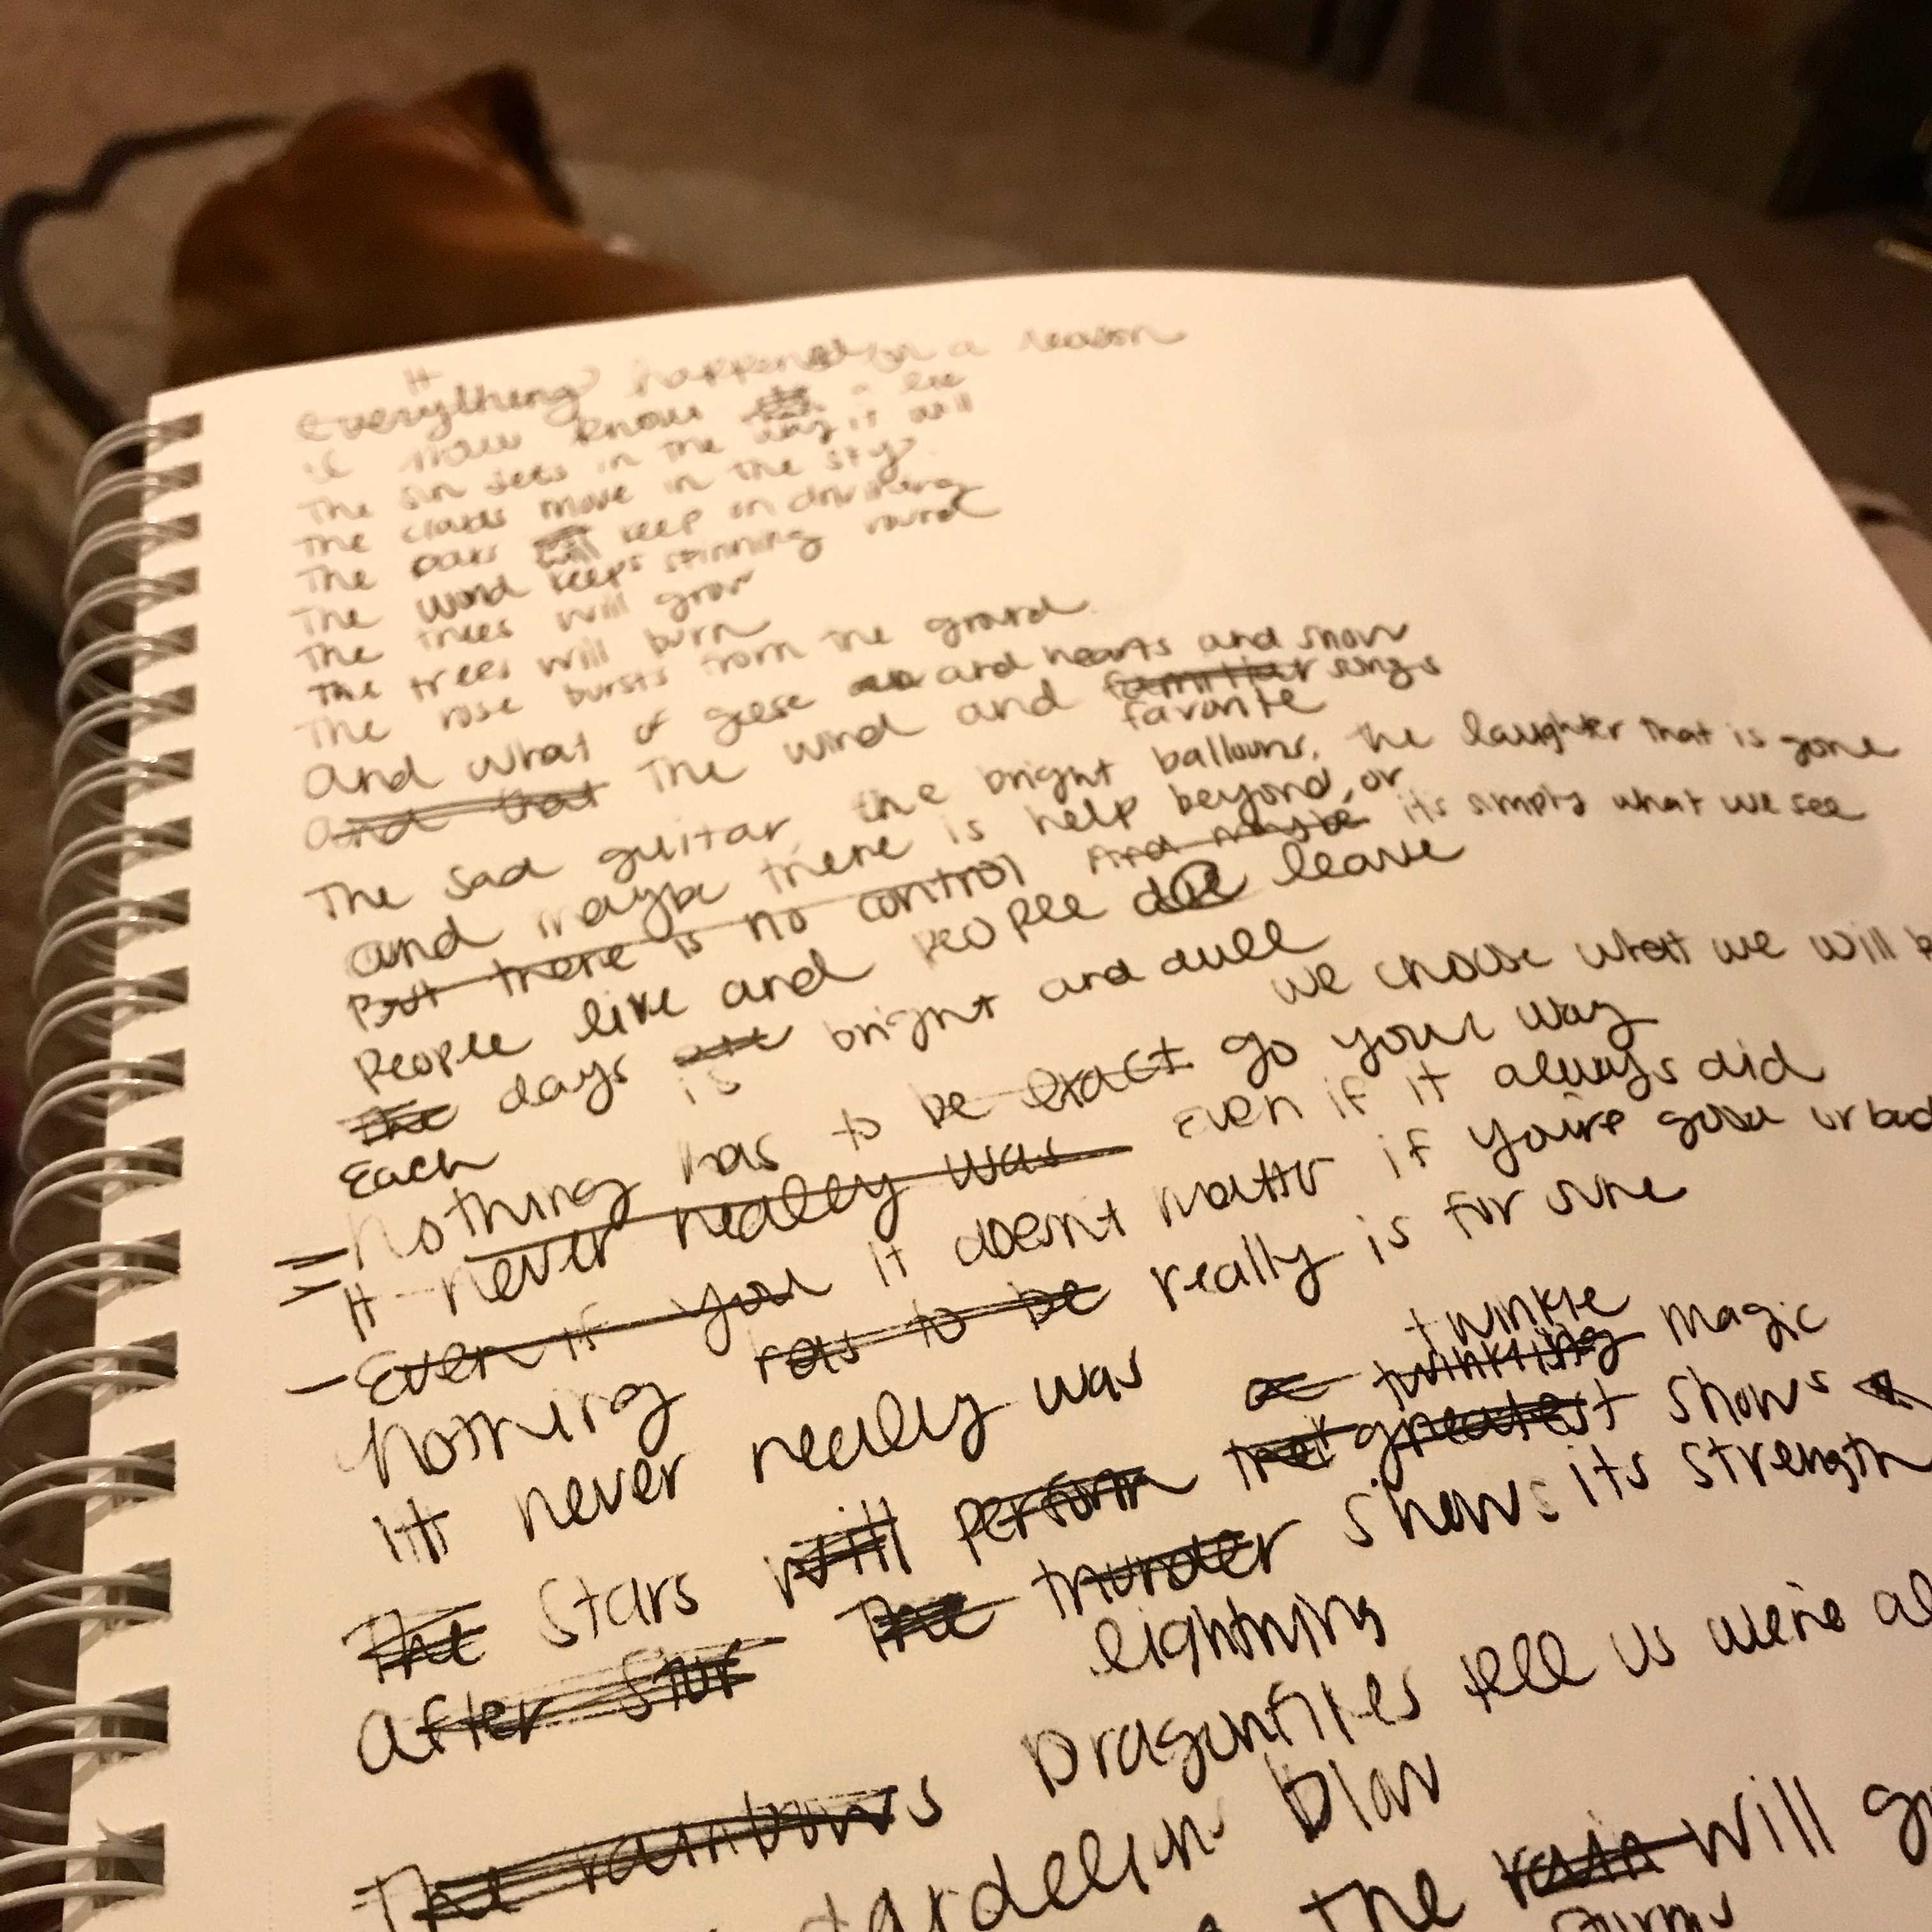 It
Everything happened for a reason
I now know a lie
The sun sets in the way it will
The clouds move in the sky
The oaks will keep on drinking
The world keeps spinning round
The trees will grow
The trees will burn
The rose bursts from the ground
And what of geese and hearts and snow
And that The wind and familiar songs
favorite
The sad guitar, the bright balloons, the laughter that is gone
and maybe there is help beyond, or
But there is no control And maybe it's simply what we see
People live and people die leave
The days are bright and dull
Each is we choose what we will
Nothing has to be exact go your way
It never really was even if it always did
Even if you it doesn't matter if you're good or bad
Nothing has to be really is for sure
It never really was
twinkle
a twinkling magic
The Stars will perform their greatest shows
After Star The thunder shows its strength
lightning
The rainbows Dragonflies tell us we're
blow
the rain will